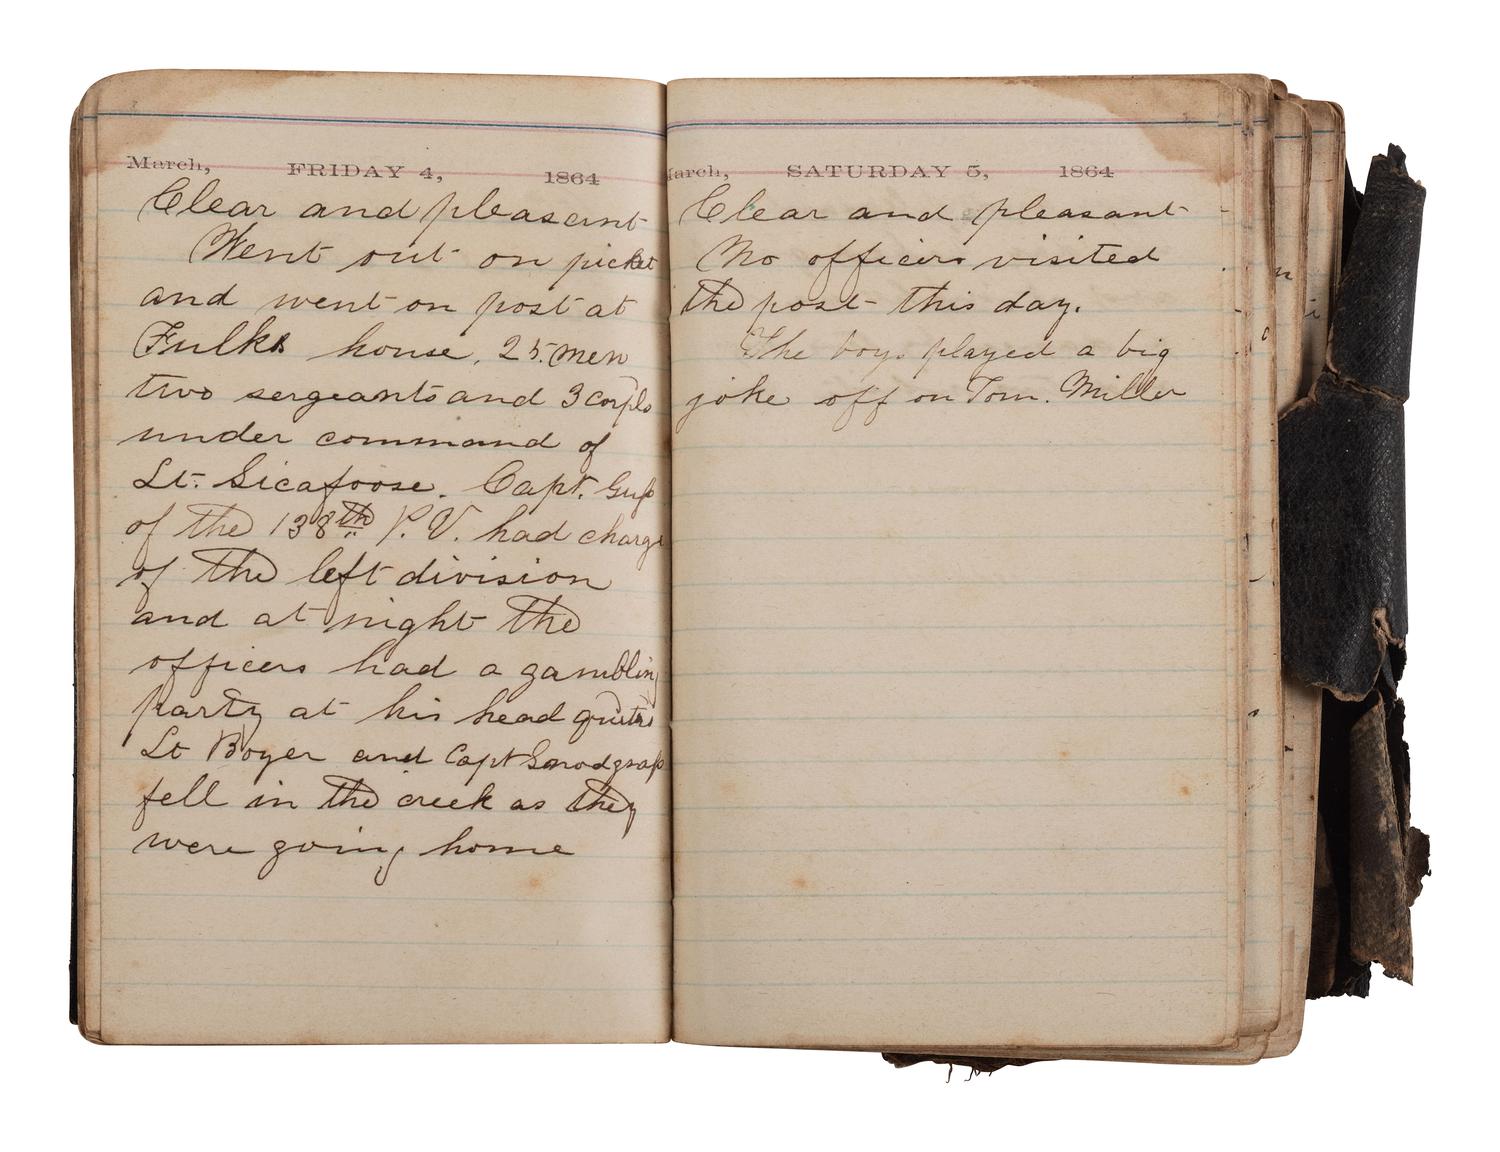 March, FRIDAY 4, 1864
Clear and pleasant
Went out on picket
and went on post at
Fulks house, 25. men
two sergeants and 3 corpls
under command of
Lt. Sicafoose. Capt.
of the 138th P. V. had charge
of the left division
and at night the
officers had a gambling
party at his head
Lt Boyer and Capt Snodgrass
fell in the creek as they
were going home
March, SATURDAY 5, 1864
Clear and pleasant
No officers visited
the post this day.
The boys played a big
joke off on Tom. Miller